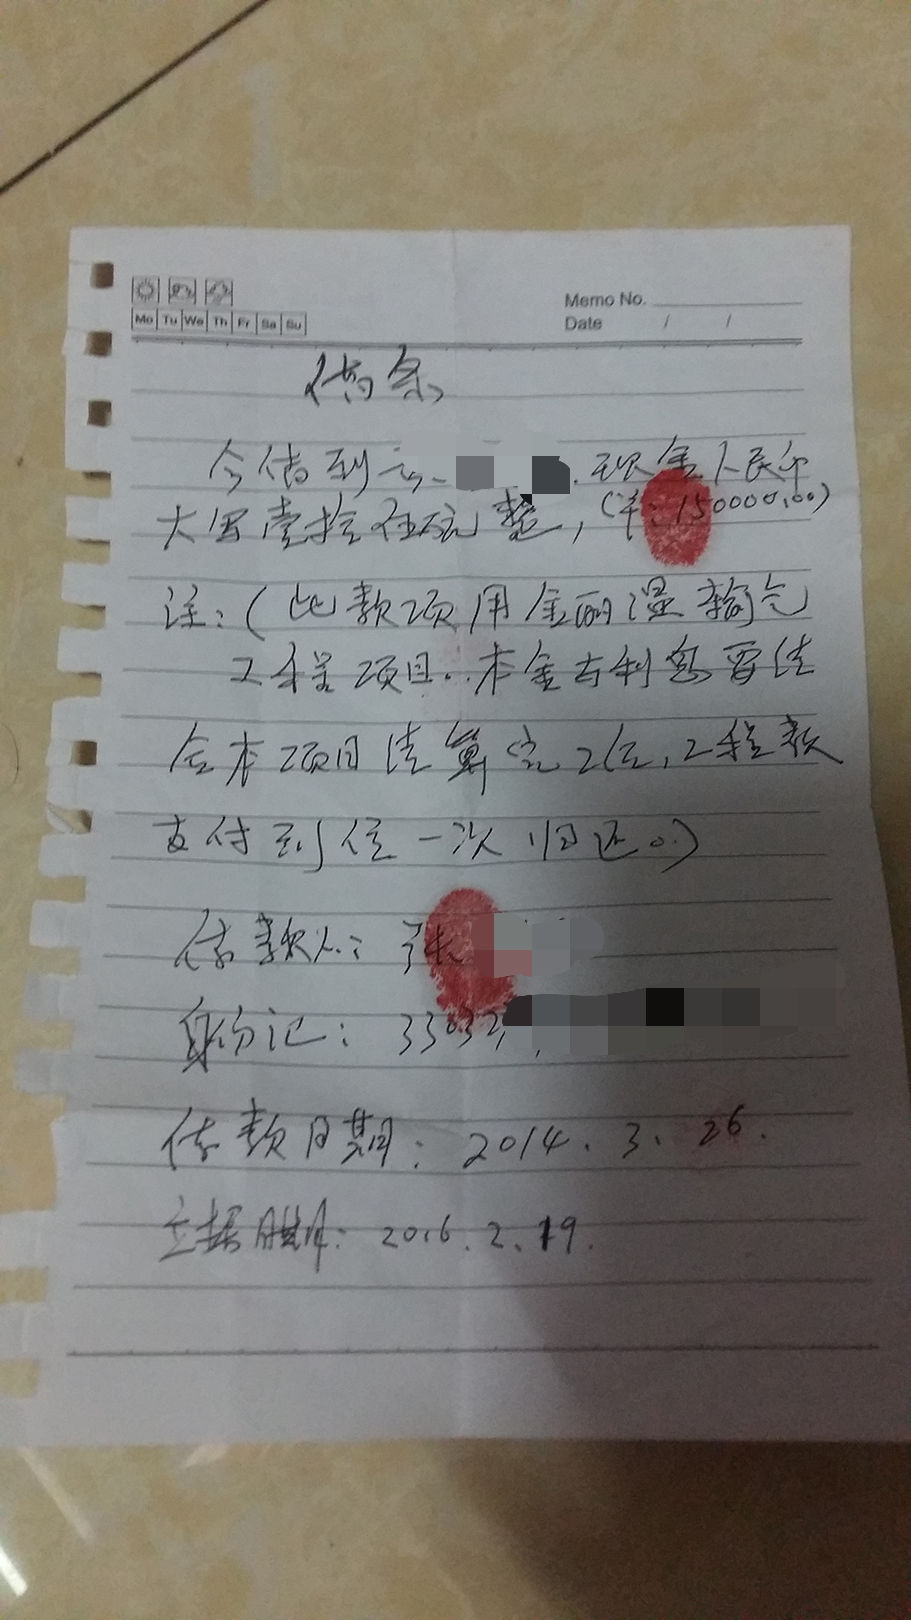 Memo No.
Mo Tu We Th Fr Sa Su
Date / /
借条
今借到 现金人民币
大写壹拾伍万元整，(￥：150000.00)
注：(此款项用金丽温输气
工程项目..本金与利息要结
合本项目结算完工后，工程款
支付到位一次归还。)
借款人：张
身份证：33032
借款日期：2014.3.26.
立据日期：2016.2.19.